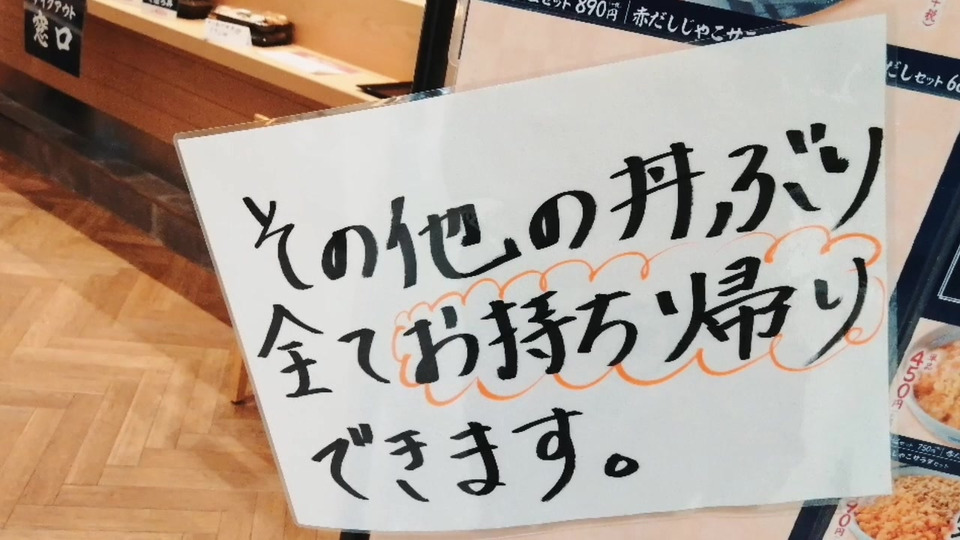 テイクアウト
窓口
セット 890円
赤だしじゃこサラ
だしセット
その他の丼ぶり
全てお持ち帰り
できます。
450円
セット 750円
じゃこサラダセット